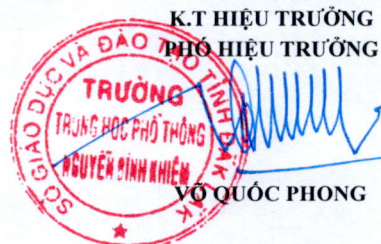 K.T HIỆU TRƯỞNG
PHÓ HIỆU TRƯỞNG
SỞ GIÁO DỤC VÀ ĐÀO TẠO TỈNH ĐẮK LẮK
TRƯỜNG
TRUNG HỌC PHỔ THÔNG
NGUYỄN BỈNH KHIÊM
VÕ QUỐC PHONG